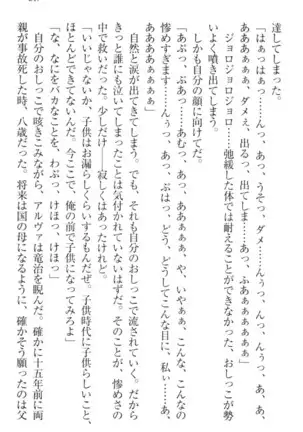 達してしまった。
「はぁっはぁっ……んっ、あっ、うそっ、ダメ……んぅっ、んっ、んんっ、あ、あ、
あああぁぁぁっ、ダメぇ、出るっ、出てしま……あっ、ふあぁぁぁぁぁっ」
ジョロジョロジョロ――弛緩した体では耐えることができなかった、おしっこが勢
いよく噴き出てしまう。
しかも自分の顔に向けてだ。
「あぶっ、あぶっ……あむっ、あっ、あああぁぁぁぁ、や、いやぁぁ、こんな、こんなの
惨めすぎます……んぅっ、あっ、ぷはっ、どう、どうしてこんな目に、私ぃ……あ、
あああああぁぁぁぁっ」
自然と涙が出てきてしまう。でも、それも自分のおしっこで流されていく。だから
きっと誰にも泣いてしまったことは気付かれていないはずだ。そのことが、惨めさの
中で救いだった。少しだけ――寂しくはあったけれど。
「いいじゃないか、子供はお漏らしくらいするもんだぜ。子供時代に子供らしいこと、
ほとんどできてないんだろ。今ここで、俺の前で子供になってみろよ」
「な、なにをバカなことを、わぷっ、けほっ、けほっ」
自分のおしっこで咳きこみながら、アルヴァは竜治を睨んだ。確かに十五年前に両
親が事故死した時、八歳だった。将来は国の母になるように、確かそう願ったのは父